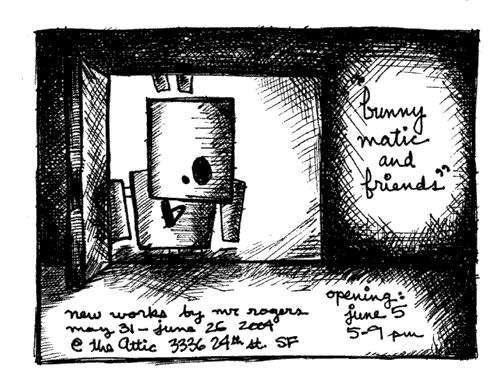 "bunny
matic
and
friends"
new works by mr rogers
may 31 - june 26 2004
@ the Attic 3336 24th st. SF
opening:
june 5
5-9 pm